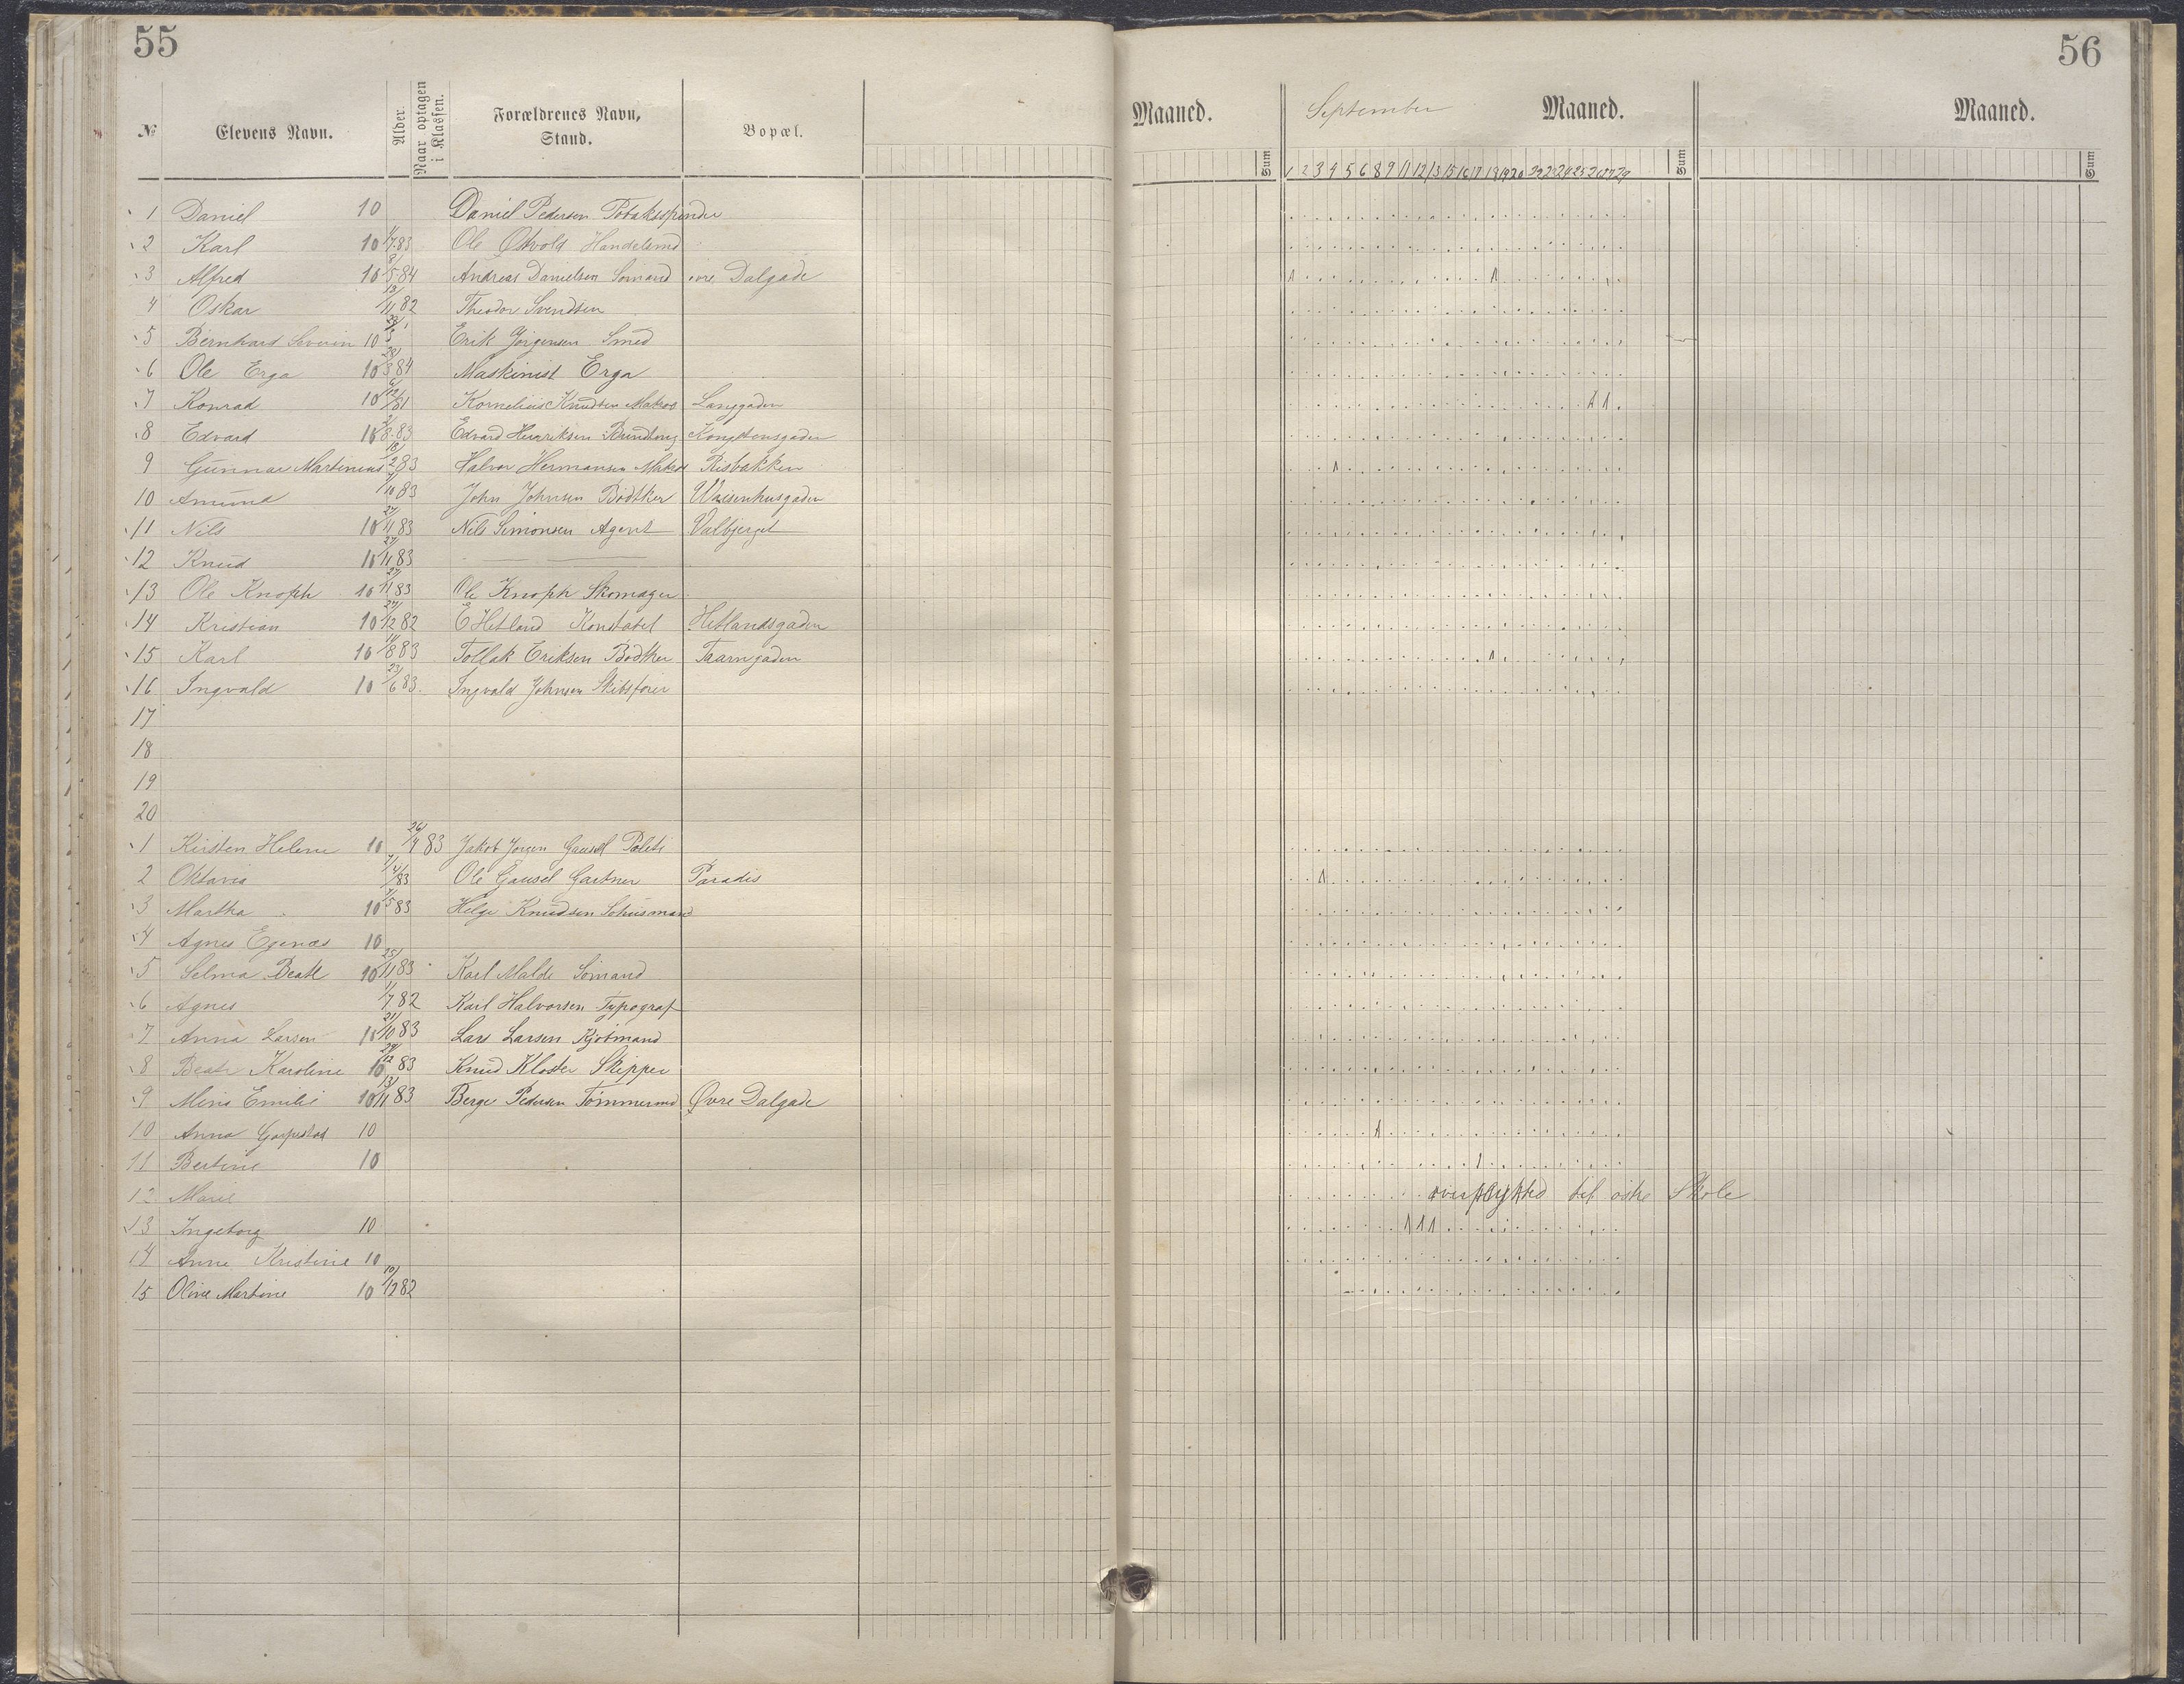 55
56
№ Elevens Navn. Alder. Naar optagen i Klassen. Forældrenes Navn, Stand. Bopæl. Maaned. Sum September Maaned. Sum Maaned. Sum
1 2 3 4 5 6 8 9 11 12 13 15 16 17 18 19 20 22 23 24 25 26 27 29
1 Daniel 10 Daniel Pedersen
2 Karl 10 7.83 Ole Østvold Handelsmd
3 Alfred 10 8/5 84 Andreas Danielsen Sømand øvre Dalgade
4 Oskar 13/11 82 Theodor Svendsen
5 Bernhard Severin 10 Erik Jørgensen Smed
6 Ole Erga 10 28/3 84 Maskinist Erga
7 Konrad 10 6/12 81 Kornelius Knudsen Matros Langgaden
8 Edvard 10 8.83 Edvard Henriksen Kongstensgaden
9 Gunnar Martinius 18/2 83 Halvor Hermansen Matros Risbakken
10 Amund /10 83 John Johnsen Bødtker Waisenhusgaden
11 Nils 10 27/11 83 Nils Simonsen Agent Valbjerget
12 Knud 10 27/11 83 — —
13 Ole Knoph 10 27/11 83 Ole Knoph Skomager
14 Kristian 10 27/12 82 E Hetland Konstabel Hetlandsgaden
15 Karl 10 11/8 83 Tollak Eriksen Bødtker Taarngaden
16 Ingvald 10 23/6 83. Ingvald Johnsen Skibsfører
17
18
19
20
1 Kirsten Helene 10 26/4 83 Jakob Jørgen Gausel Politi
2 Oktavia 83 Ole Gausel Gartner Paradis
3 Martha 10 7/5 83 Helge Knudsen
4 Agnes Egenæs 10
5 Selma Beate 10 25/11 83 Karl Malde Sømand
6 Agnes 1/7 82 Karl Halvorsen Typograf
7 Anna Larsen 10 21/10 83 Lars Larsen Kjøbmand
8 Beate Karoline 10 29/12 83 Knud Kloster Skipper
9 Emilie 10 13/11 83 Berge Pedersen Tømmermd Øvre Dalgade
10 Anna Garpestad 10
11 Bertine 10
12 Marie overflyttet til østre Skole
13 Ingeborg 10
14 Anne Kristine 10
15 Oline Martine 10 10/12 82